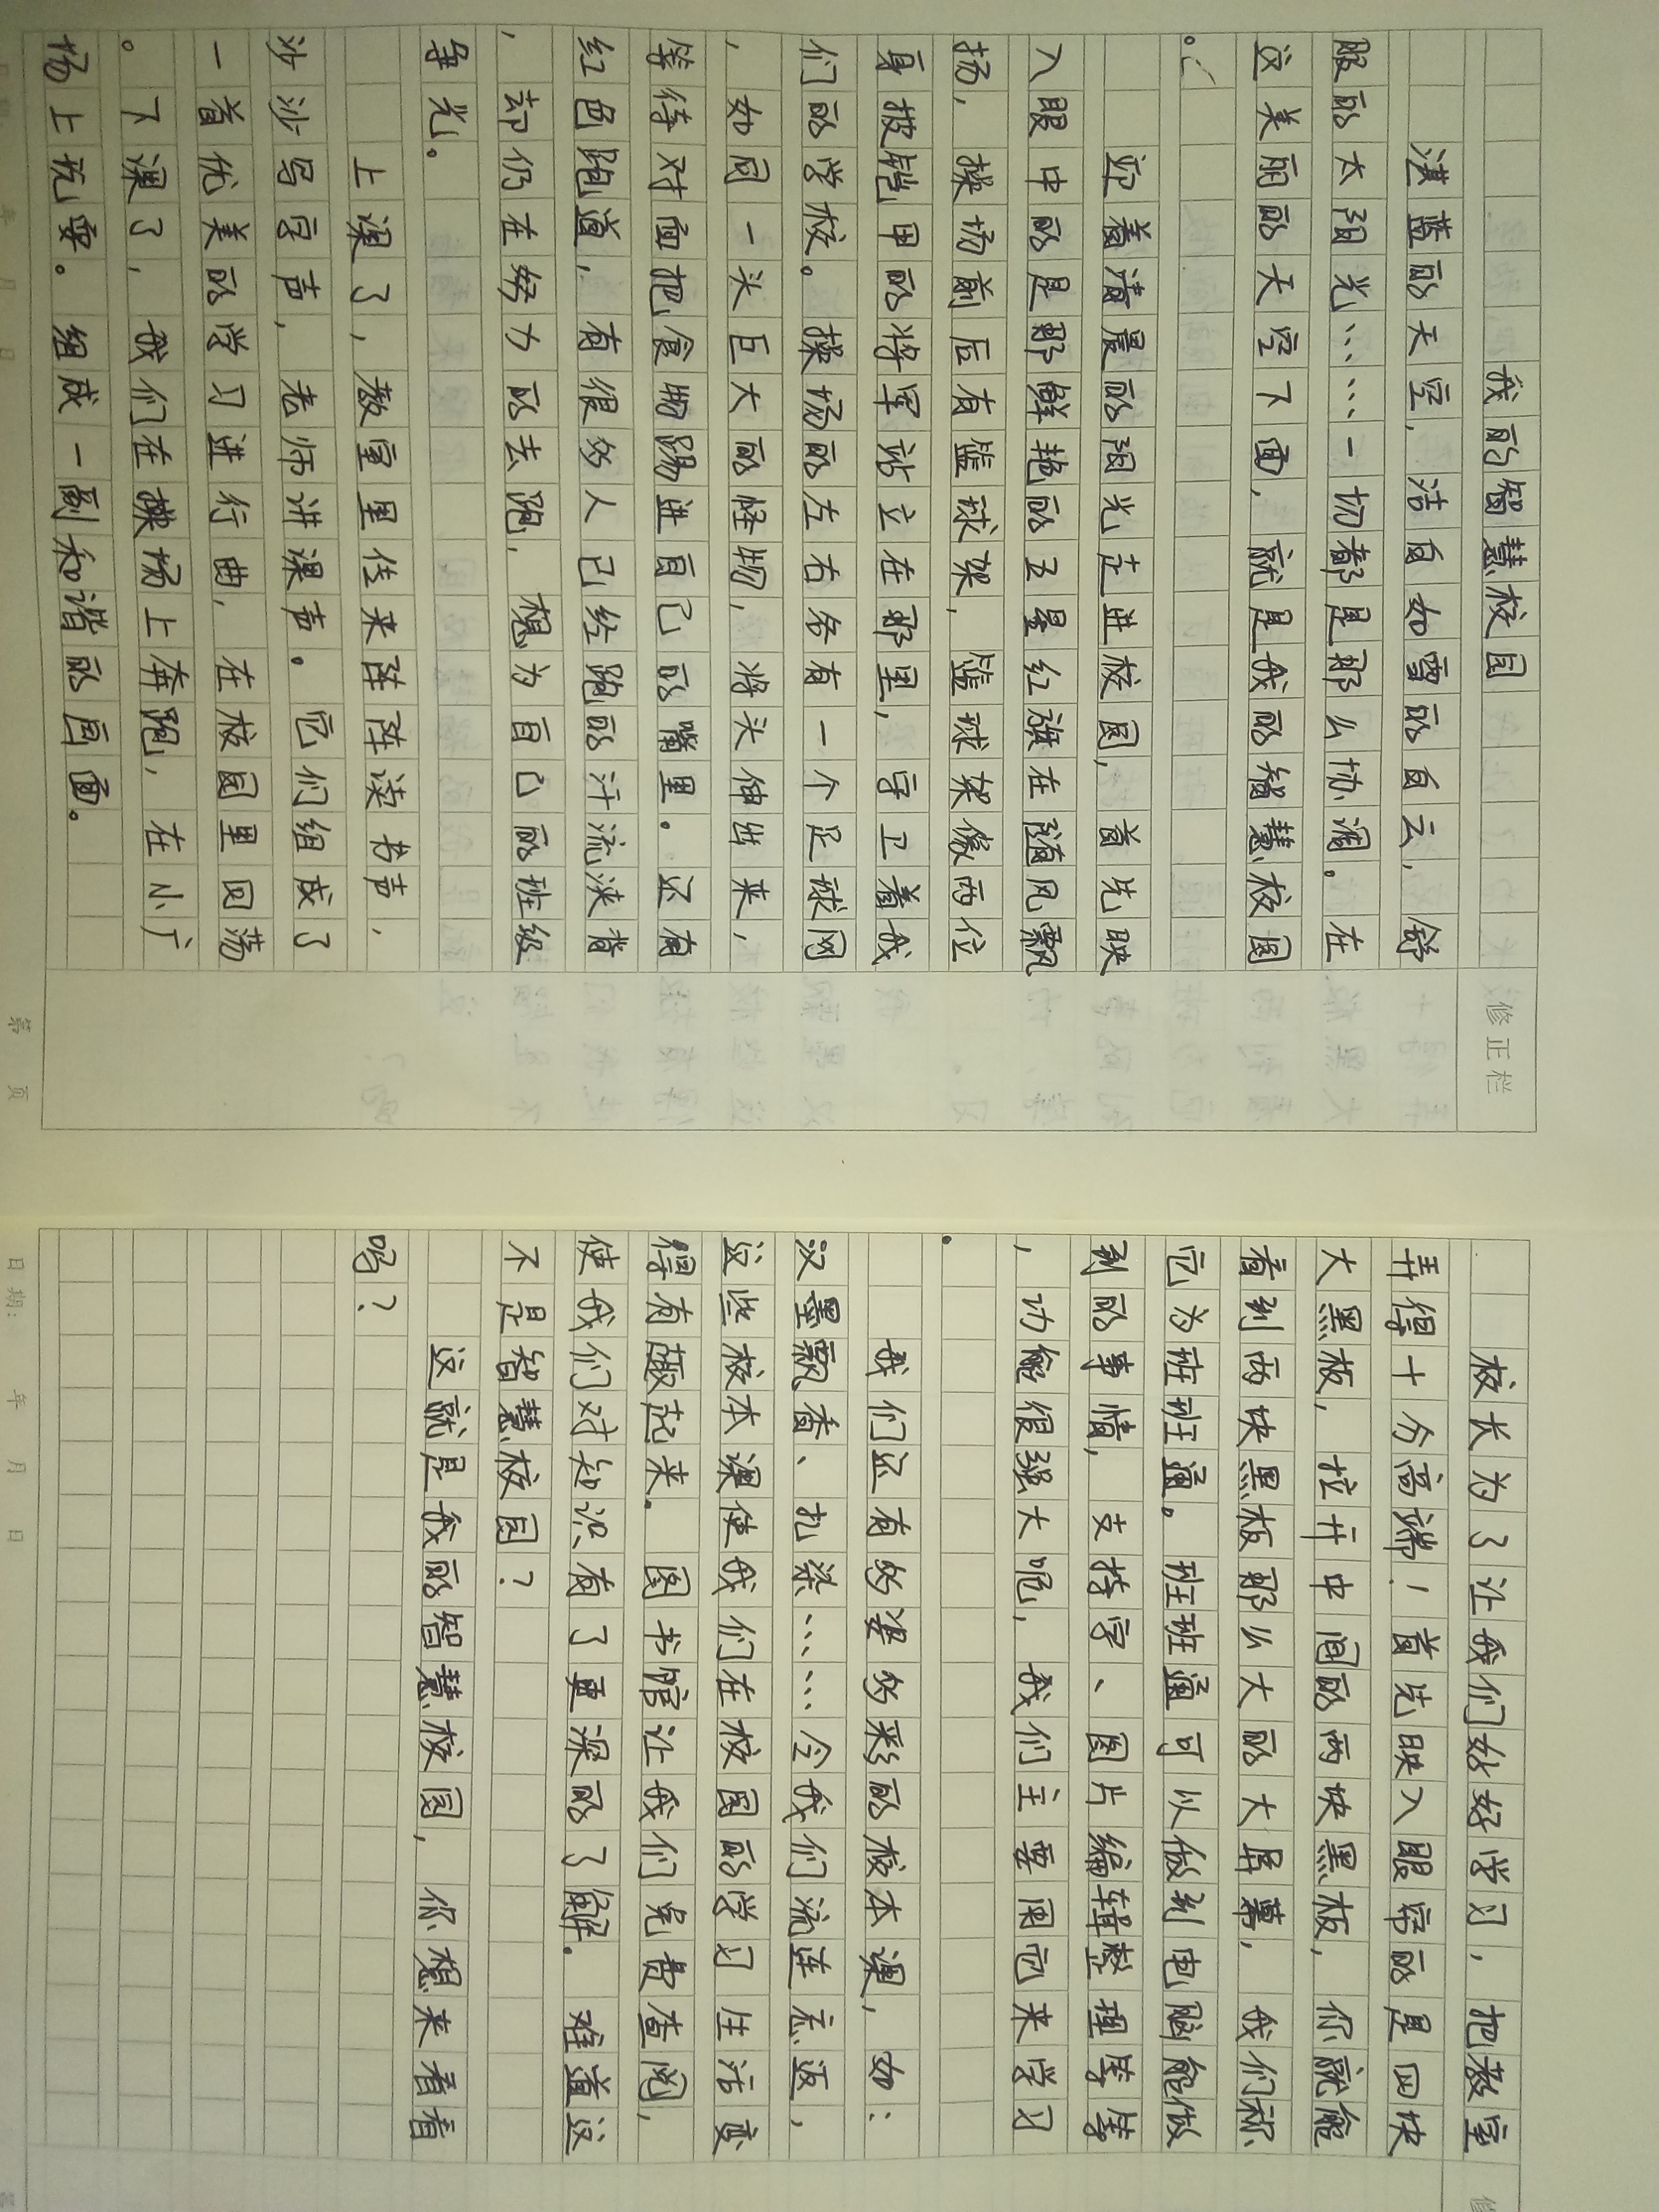 我的智慧校园
湛蓝的天空，洁白如雪的白云，舒
服的太阳光……一切都是那么协调。在
这美丽的天空下面，就是我的智慧校园
。
迎着清晨的阳光走进校园，首先映
入眼中的是那鲜艳的五星红旗在随风飘
扬，操场前后有篮球架，篮球架像两位
身披铠甲的将军站立在那里，守卫着我
们的学校。操场的左右各有一个足球网
，如同一头巨大的怪物，将头伸出来，
等待对面把食物踢进自己的嘴里。还有
红色跑道，有很多人已经跑的汗流浃背
，却仍在努力的去跑，想为自己的班级
争光。
上课了，教室里传来阵阵读书声，
沙沙写字声，老师讲课声。它们组成了
一首优美的学习进行曲，在校园里回荡
。下课了，我们在操场上奔跑，在小广
场上玩耍。组成一副和谐的画面。
修正栏
第 页
校长为了让我们好好学习，把教室
弄得十分高端！首先映入眼帘的是四块
大黑板，拉开中间的两块黑板，你就能
看到两块黑板那么大的大屏幕，我们称
它为班班通。班班通可以做到电脑能做
到的事情，支持字、图片编辑整理等等
，功能很强大呢，我们主要用它来学习
。
我们还有多姿多彩的校本课，如：
汉墨飘香、扎染……令我们流连忘返，
这些校本课使我们在校园的学习生活变
得有趣起来。图书馆让我们免费查阅，
使我们对知识有了更深的了解。难道这
不是智慧校园？
这就是我的智慧校园，你想来看看
吗？
日期： 年 月 日